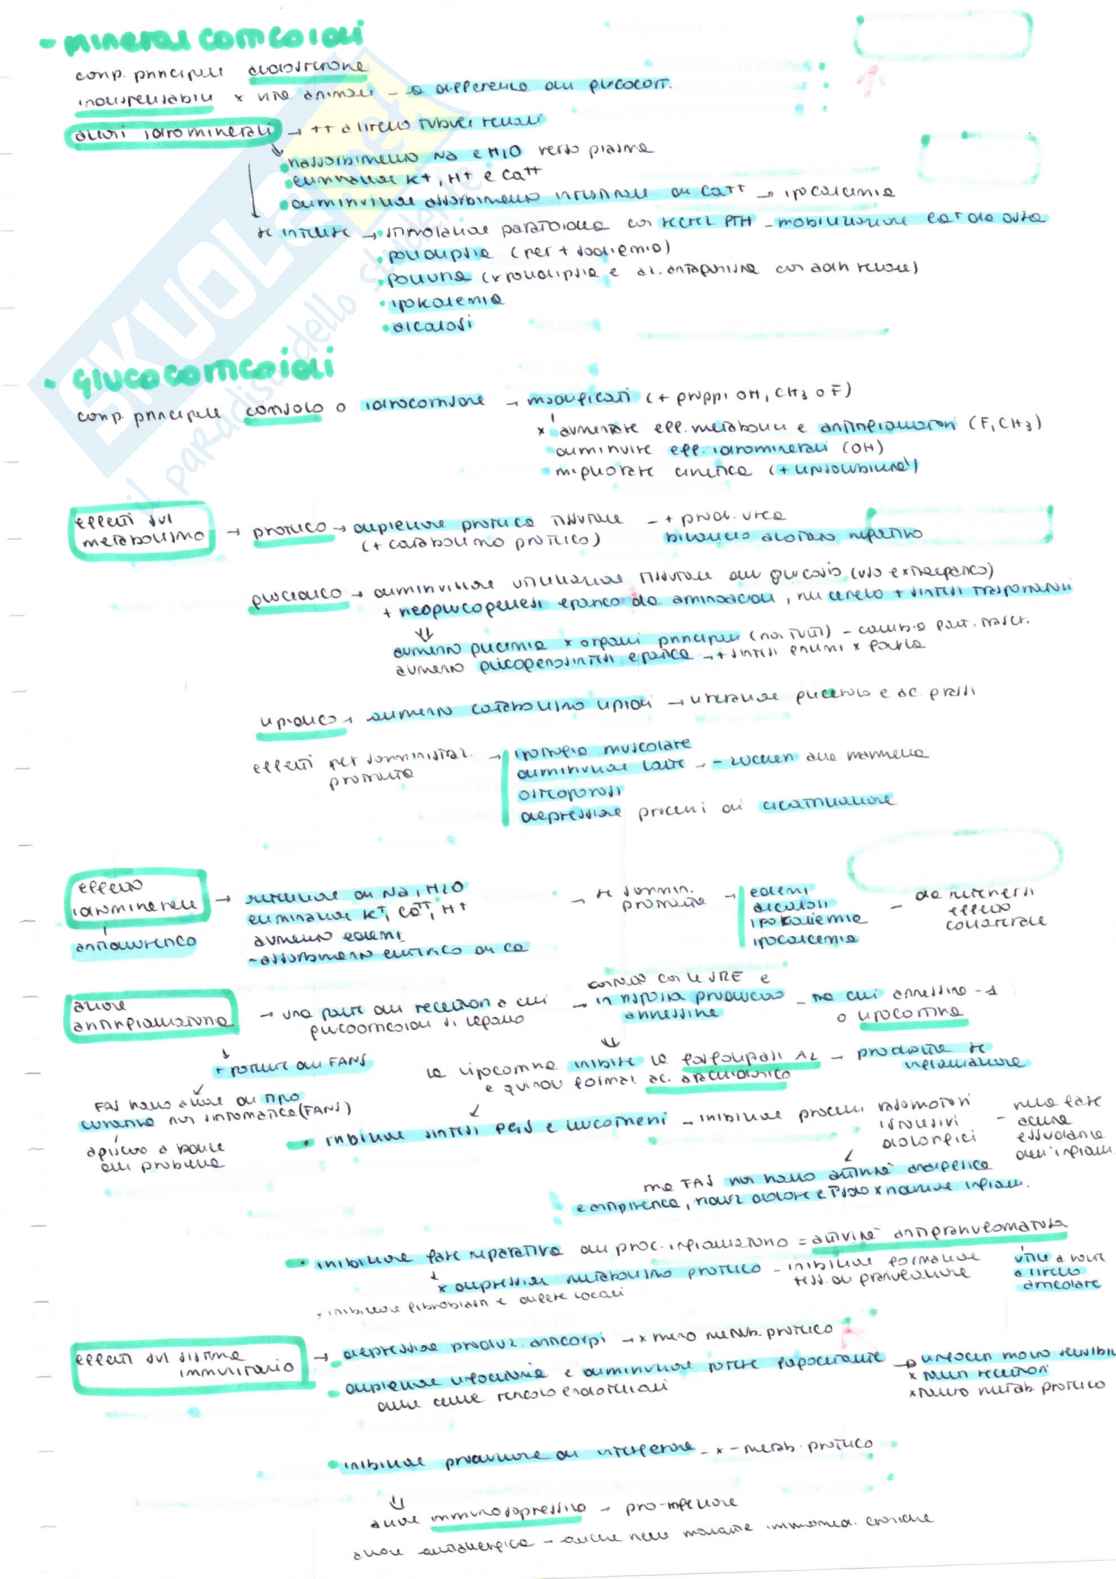 - mineralcorticoidi
comp. principale aldosterone
indispensabili x vita animali - a differenza dei glucocort.
azioni idrominerali → ++ a livello tubuli renali
• riassorbimento Na e H2O verso plasma
• eliminazione K+, H+ e Ca++
• diminuzione assorbimento intestinale di Ca++ → ipocalcemia
se intense → • stimolazione paratiroidea con secrez. PTH - mobilizzazione Ca++ da ossa
• polidipsia (per + sodiemia)
• poliuria (x polidipsia e az. antagonista con adh renale)
• ipokalemia
• alcalosi
• glucocorticoidi
comp. principale cortisolo o idrocortisone → modificati (+ gruppi OH, CH3 o F)
x aumentare eff. metabolici e antinfiammatori (F, CH3)
diminuire eff. idrominerali (OH)
• migliorare cinetica (+ liposolubilità)
effetti sul metabolismo → proteico → deplezione proteica tissutale - + prod. urea
(+ catabolismo proteico) bilancio azotato negativo
glucidico → diminuzione utilizzazione tissutale del glucosio (uso extraepatico)
+ neoglucogenesi epatica da aminoacidi, nel fegato + sintesi trasportatori
⇓
aumento glicemia x organi principali (non tutti) - cambia patt. trascr.
aumento glicogenosintesi epatica → + sintesi enzimi x farla
lipidico → aumento catabolismo lipidi → liberazione glicerolo e ac. grassi
effetti per somministraz. protratta → ipotrofia muscolare
diminuzione latte → - zuccheri alla mammella
osteoporosi
depressione processi di cicatrizzazione
effetto idrominerale → ritenzione di Na, H2O
eliminazione K+, Ca++, H+
antidiuretico aumento edemi
- assorbimento enterico di Ca
→ se sommin. protratta → edemi
alcalosi
ipokaliemia
ipocalcemia
- da ritenersi effetto collaterale
azione antinfiammatoria → una parte dei recettori a cui glucocorticoidi si legano
→ contatto con le SRE e in risposta producono annessine - tra cui annessina-1
o lipocortina
⇓
la lipocortina inibisce la fosfolipasi A2 - prodotta se infiammazione
e quindi formaz. ac. arachidonico
+ potente dei FANS
FAS hanno azione di tipo
curativa non sintomatica (FANS)
agiscono a monte
del problema
• inibizione sintesi PGs e leucotrieni - inibizione processi vasomotori
essudativi
dolorifici
- nella fase
acuta
essudativa
dell'infiam.
ma FAS non hanno attività analgesica
e antipiretica, riduz dolore e T° solo x riduzione infiam.
• inibizione fase riparativa del proc. infiammatorio = attività antigranulomatosa
x depressione metabolismo proteico - inibizione formazione
tess. di granulazione
utile a livello articolare
- inibizione fibroblasti e difese locali
effetti sul sistema immunitario → depressione produz. anticorpi → x meno metab. proteico
• deplezione linfociti e diminuzione potere fagocitante
delle cellule reticolo endoteliali
→ linfociti meno sensibili
x meno recettori
x meno metab. proteico
• inibizione produzione di interferone - x - metab. proteico
⇓
azione immunosoppressiva - pro-infezione
azione antiallergica - anche nelle malattie immunomed. croniche